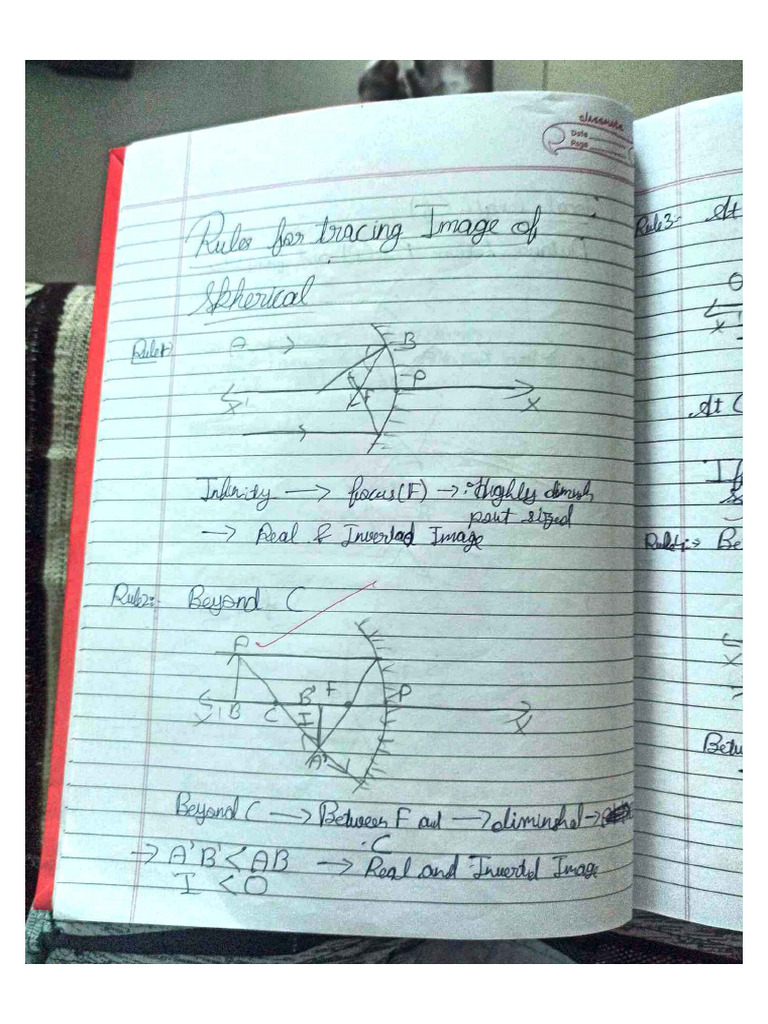 classmate
Date
Page
Rules for tracing Image of
Spherical
Rule1:-
A
B
P
F
X'
X
Infinity → focus(F) → Highly diminish
point sized
→ Real & Inverted Image
Rule2:- Beyond C
A
B C B' F P
I
X' X
A'
Beyond C → Between F and → diminshed →
C
→ A'B' < AB → Real and Inverted Image
I < O
Rule3:- At
O
X'
At C
Rule4:-> Be
X
Betw